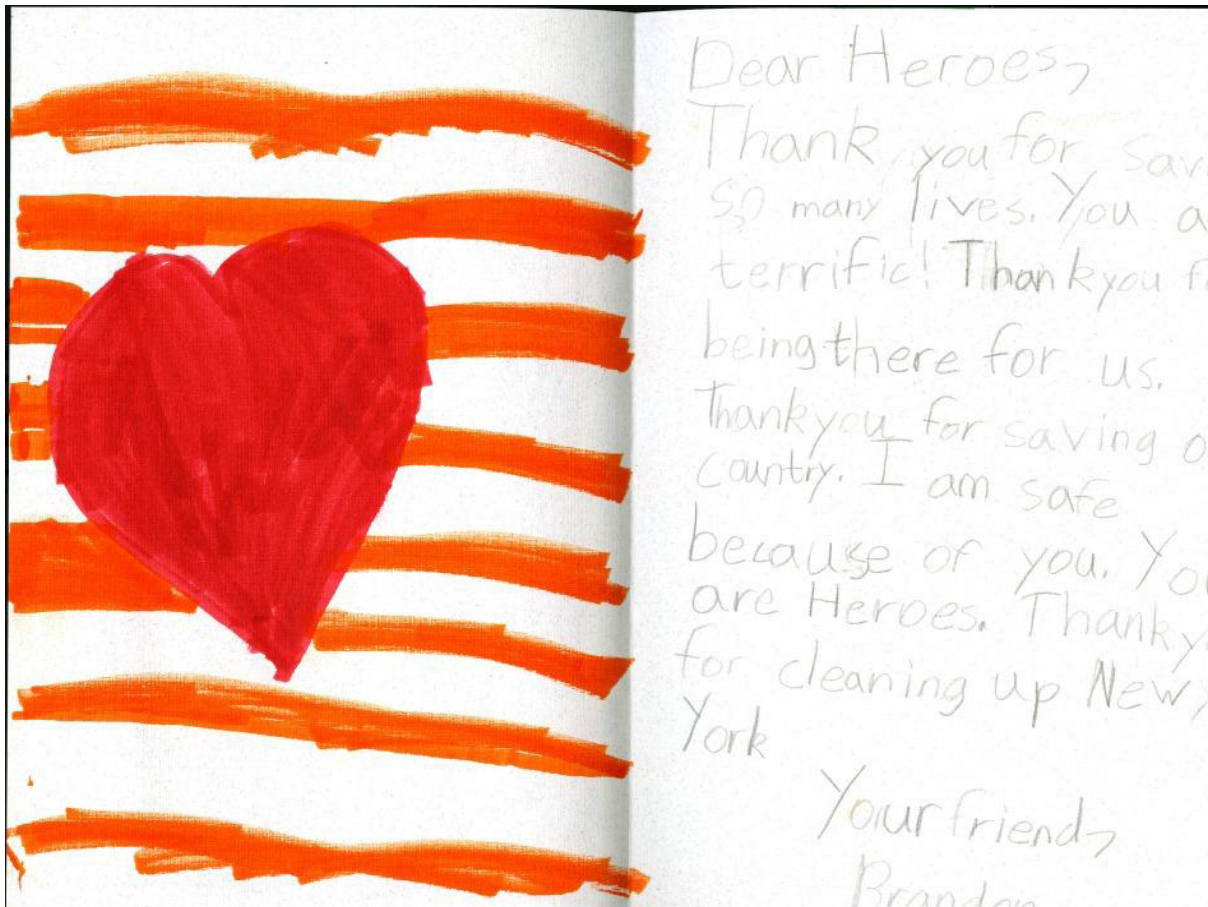 Dear Heroes,
Thank you for sav
so many lives. You a
terrific! Thankyou f
being there for us.
Thankyou for saving o
country. I am safe
because of you. You
are Heroes. Thanky
for cleaning up New
York
Your friend,
Brandon